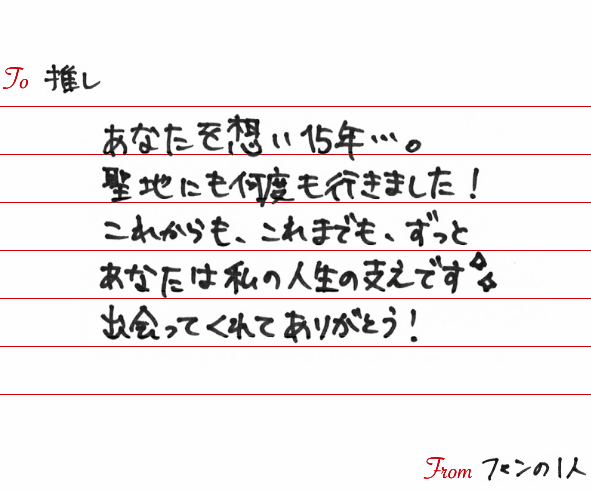 To 推し
あなたを想い15年…。
聖地にも何度も行きました！
これからも、これまでも、ずっと
あなたは私の人生の支えです
出会ってくれてありがとう！
From ファンの1人